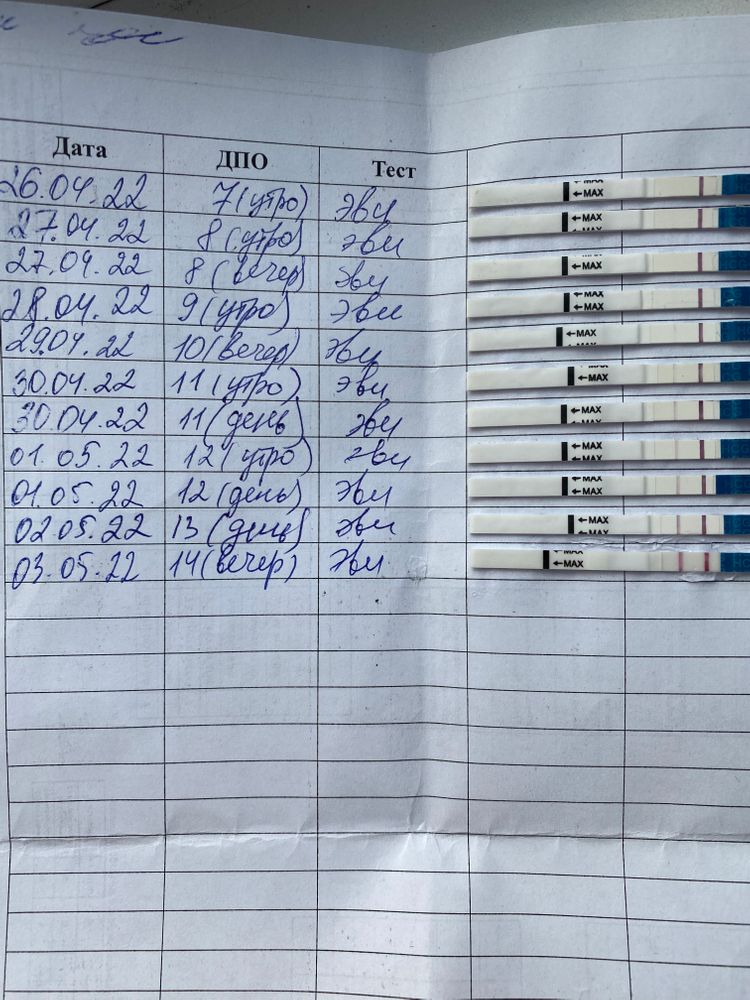 Дата ДПО Тест
26.04.22 7 (утро) Эви ←MAX
27.04.22 8 (утро) Эви ←MAX
27.04.22 8 (вечер) Эви ←MAX
28.04.22 9 (утро) Эви ←MAX
29.04.22 10 (вечер) Эви ←MAX
30.04.22 11 (утро) Эви ←MAX
30.04.22 11 (день) Эви ←MAX
01.05.22 12 (утро) Эви ←MAX
01.05.22 12 (день) Эви ←MAX
02.05.22 13 (день) Эви ←MAX
03.05.22 14 (вечер) Эви ←MAX